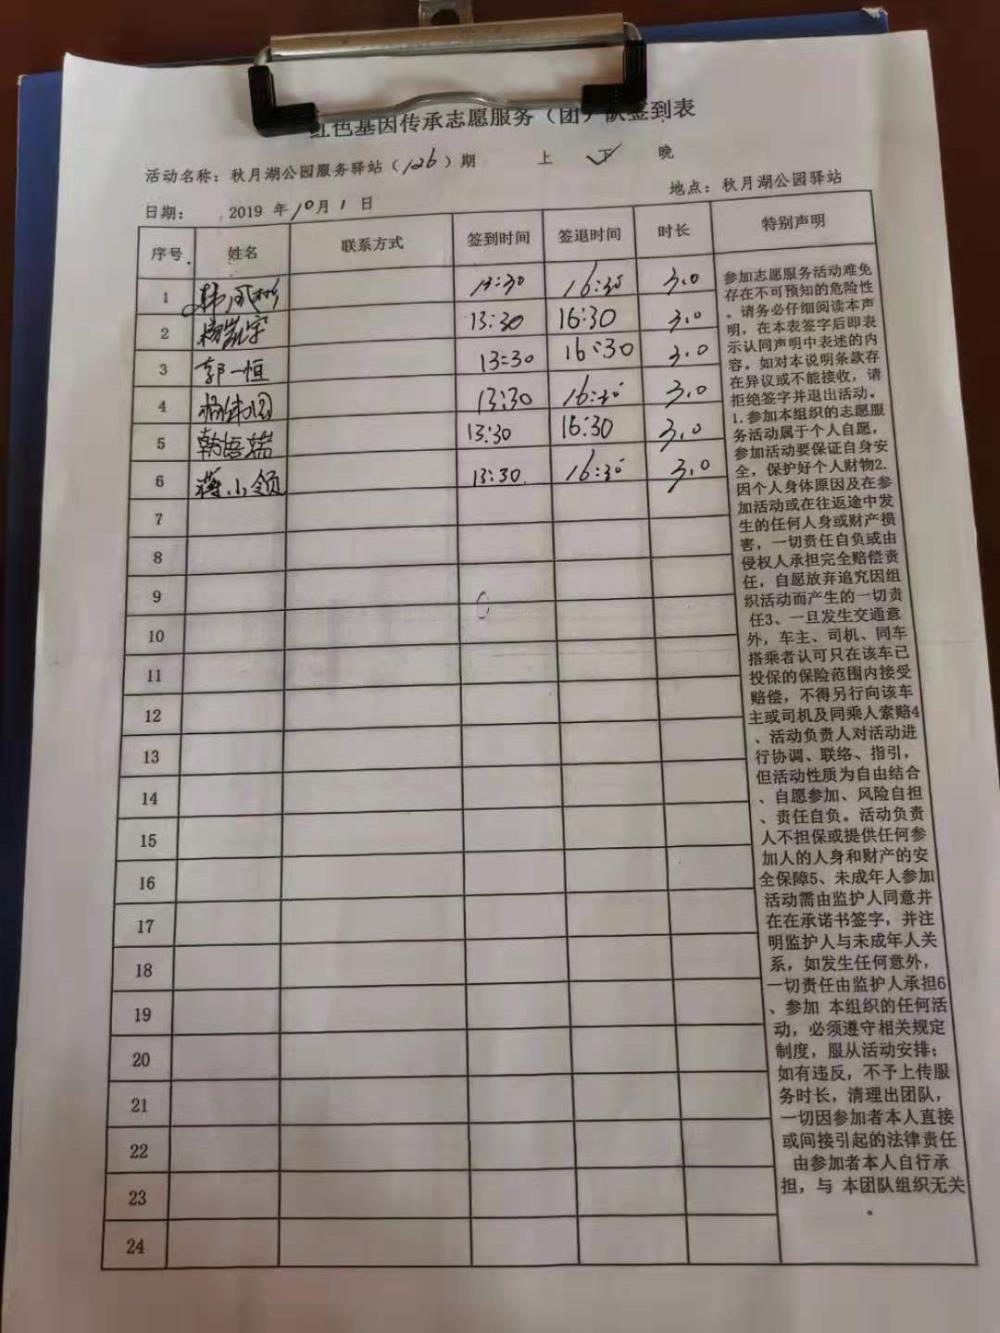 红色基因传承志愿服务（团）队签到表
活动名称：秋月湖公园服务驿站（126）期 上 下 晚
日期： 2019 年10月1日 地点：秋月湖公园驿站
序号 姓名 联系方式 签到时间 签退时间 时长 特别声明
1 13:30 16:30 3.0
2 13:30 16:30 3.0
3 郭一恒 13:30 16:30 3.0
4 13:30 16:30 3.0
5 13:30 16:30 3.0
6 蒋小领 13:30 16:30 3.0
7
8
9
10
11
12
13
14
15
16
17
18
19
20
21
22
23
24
参加志愿服务活动难免
存在不可预知的危险性
。请务必仔细阅读本声
明，在本表签字后即表
示认同声明中表述的内
容。如对本说明条款存
在异议或不能接收，请
拒绝签字并退出活动。
1.参加本组织的志愿服
务活动属于个人自愿，
参加活动要保证自身安
全，保护好个人财物2.
因个人身体原因及在参
加活动或在往返途中发
生的任何人身或财产损
害，一切责任自负或由
侵权人承担完全赔偿责
任，自愿放弃追究因组
织活动而产生的一切责
任3、一旦发生交通意
外，车主、司机、同车
搭乘者认可只在该车已
投保的保险范围内接受
赔偿，不得另行向该车
主或司机及同乘人索赔4
、活动负责人对活动进
行协调、联络、指引，
但活动性质为自由结合
、自愿参加、风险自担
、责任自负。活动负责
人不担保或提供任何参
加人的人身和财产的安
全保障5、未成年人参加
活动需由监护人同意并
在在承诺书签字，并注
明监护人与未成年人关
系，如发生任何意外，
一切责任由监护人承担6
、参加 本组织的任何活
动，必须遵守相关规定
制度，服从活动安排；
如有违反，不予上传服
务时长，清理出团队，
一切因参加者本人直接
或间接引起的法律责任
由参加者本人自行承
担，与 本团队组织无关
。